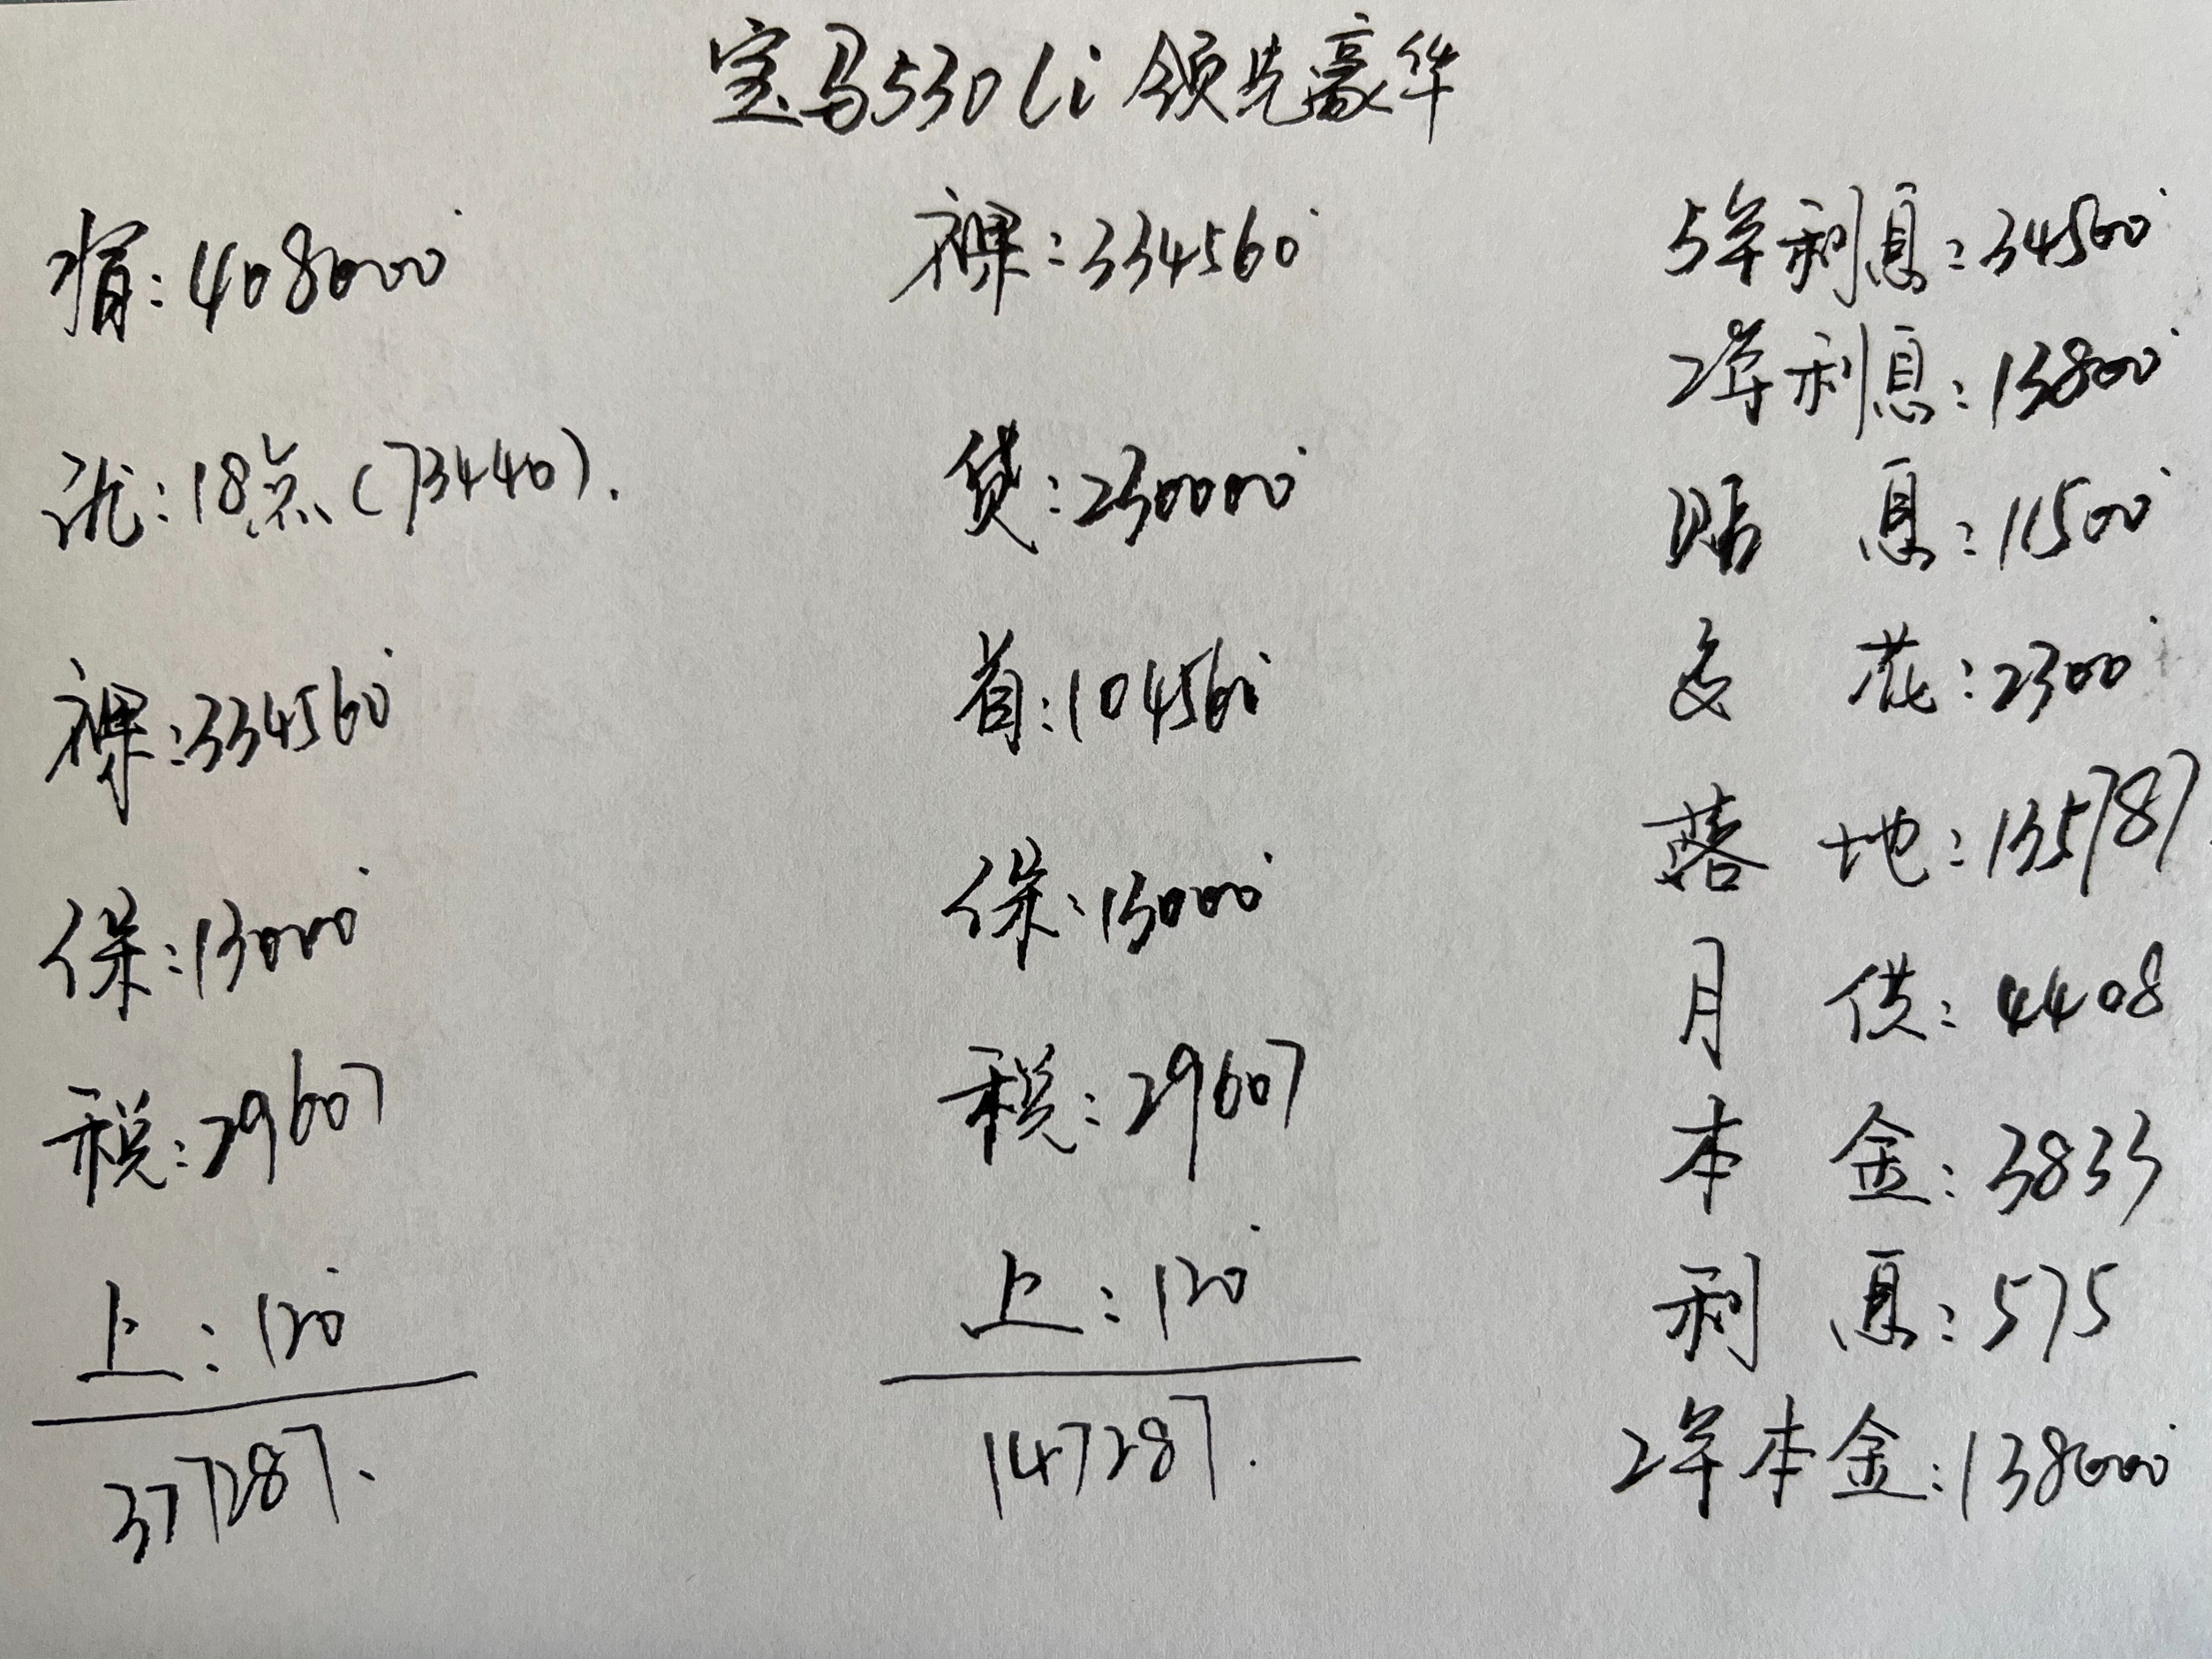 宝马530Li 领先豪华
指:408000
优:18点(73440).
裸:334560
保:13000
税:29607
上:120
377287.
裸:334560
贷:230000
首:104560
保:13000
税:29607
上:120
147287.
5年利息:34500
2年利息:13800
贴息:11500
多花:2300
落地:135787
月供:4408
本金:3833
利息:575
2年本金:138000